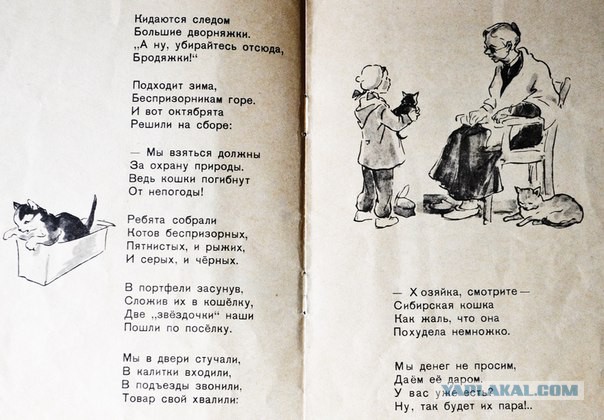 Кидаются следом
Большие дворняжки.
„А ну, убирайтесь отсюда,
Бродяжки!“
Подходит зима,
Беспризорникам горе.
И вот октябрята
Решили на сборе:
— Мы взяться должны
За охрану природы.
Ведь кошки погибнут
От непогоды!
Ребята собрали
Котов беспризорных,
Пятнистых, и рыжих,
И серых, и чёрных.
В портфели засунув,
Сложив их в кошёлку,
Две „звёздочки“ наши
Пошли по посёлку.
Мы в двери стучали,
В калитки входили,
В подъезды звонили,
Товар свой хвалили:
— Хозяйка, смотрите —
Сибирская кошка
Как жаль, что она
Похудела немножко.
Мы денег не просим,
Даём её даром.
У вас уже есть?
Ну, так будет их пара!..
YAPLAKAL.COM